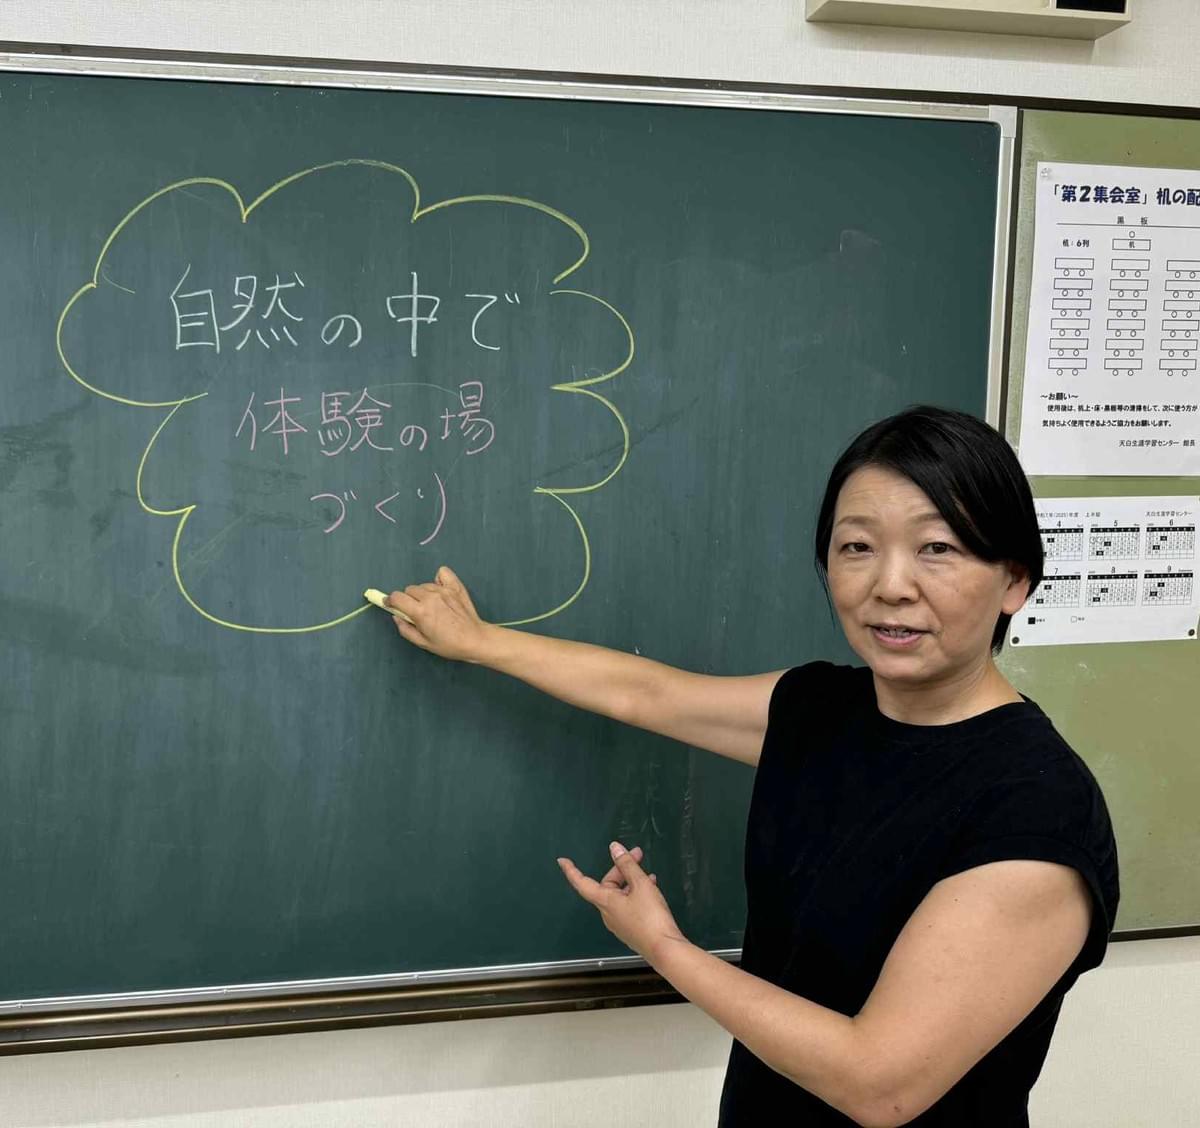 自然の中で
体験の場
づくり
「第2集会室」机の配
黒 板
机:6列
机
~お願い~
使用後は、机上・床・黒板等の清掃をして、次に使う方が
気持ちよく使用できるようご協力をお願いします。
天白生涯学習センター 館長
令和7年(2025)年度 上半期 天白生涯学習センター
4 5 6
7 8 9